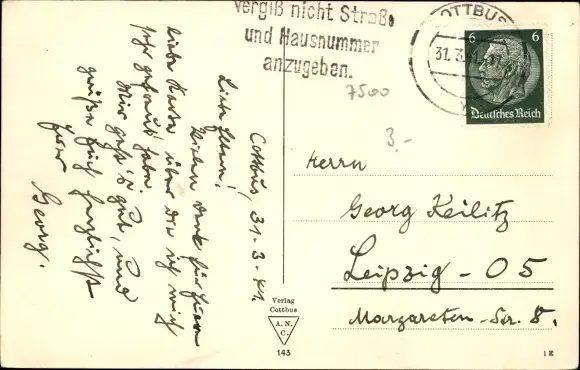 vergiß nicht Straße
und Hausnummer
anzugeben.
COTTBUS
31.3.41
6 6
Deutsches Reich
7500
3,-
Cottbus, 31.3.41.
Liebe Eltern!
Vielen Dank für Eure
liebe Karte über die ich mich
sehr gefreut habe.
Mir geht's gut, und
grüße Euch herzlichst
Euer
Georg.
Herrn
Georg Keilitz
Leipzig - O 5
Margareten-Str. 8.
Verlag
Cottbus
A. N.
C.
143
1 E